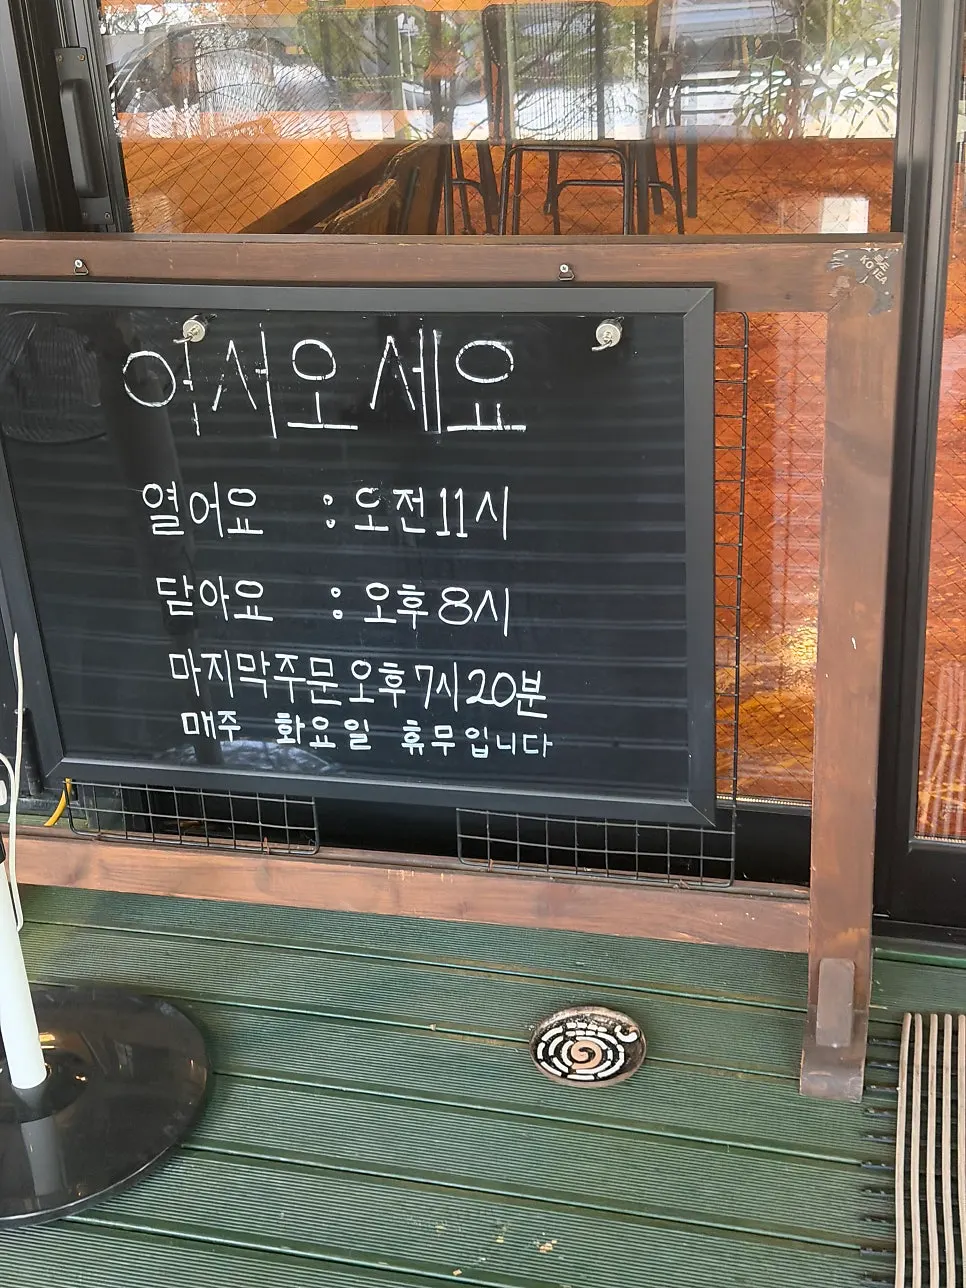 어서오세요
열어요 : 오전11시
닫아요 : 오후8시
마지막주문오후7시20분
매주 화요일 휴무입니다
KOREA